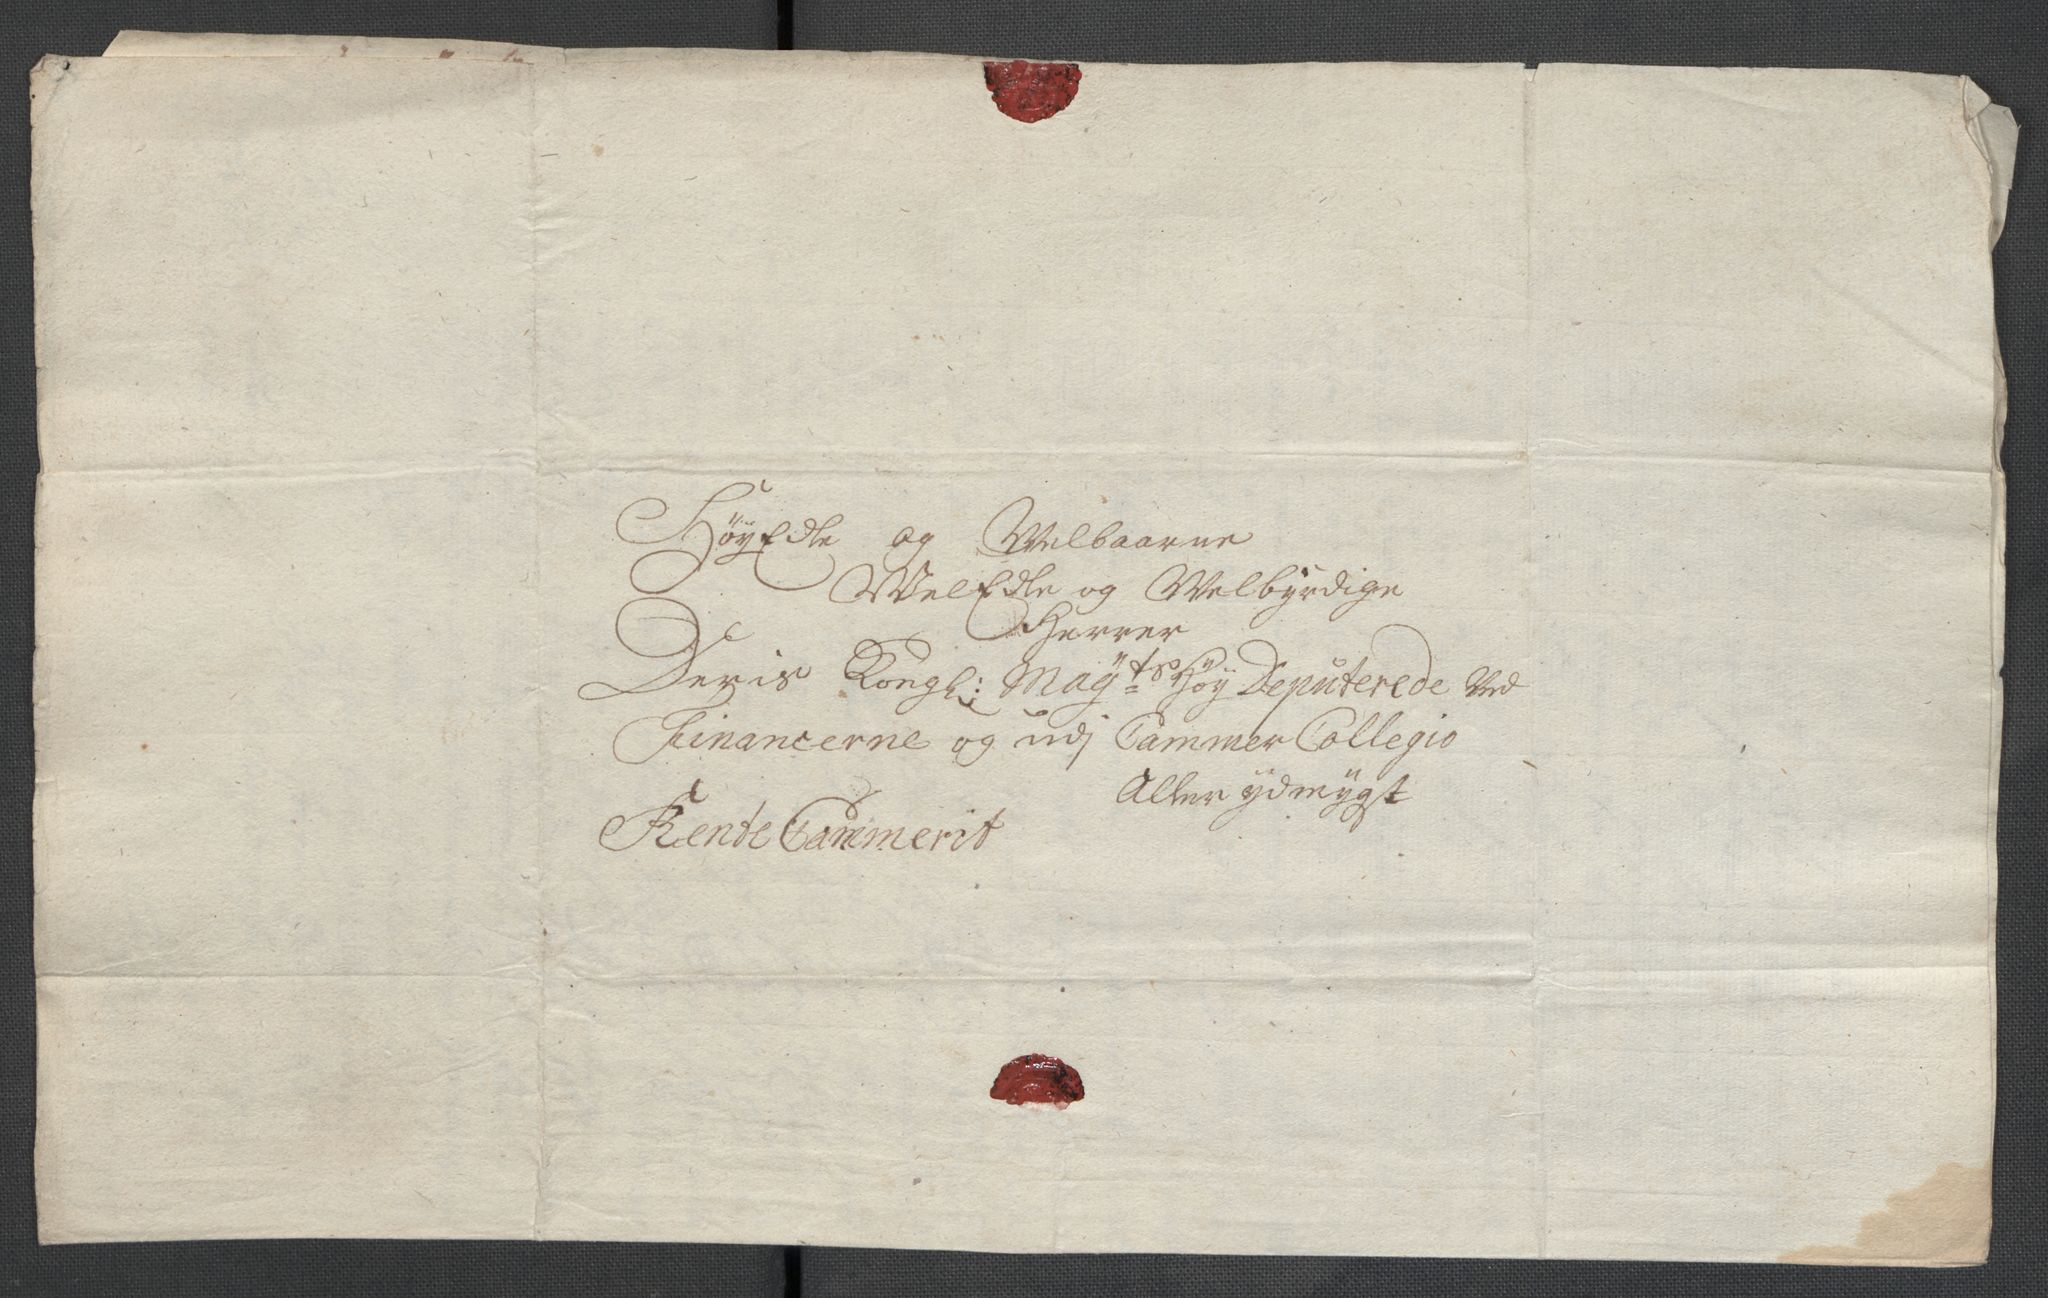 HøyEdle og Welbaarne
WelEdle og Welbyrdige
Herrer
Deris Kongl: Mayts Høy Deputerede ved
Financerne og udj Cammer Collegio
Aller ydmygst
Rente Cammerit